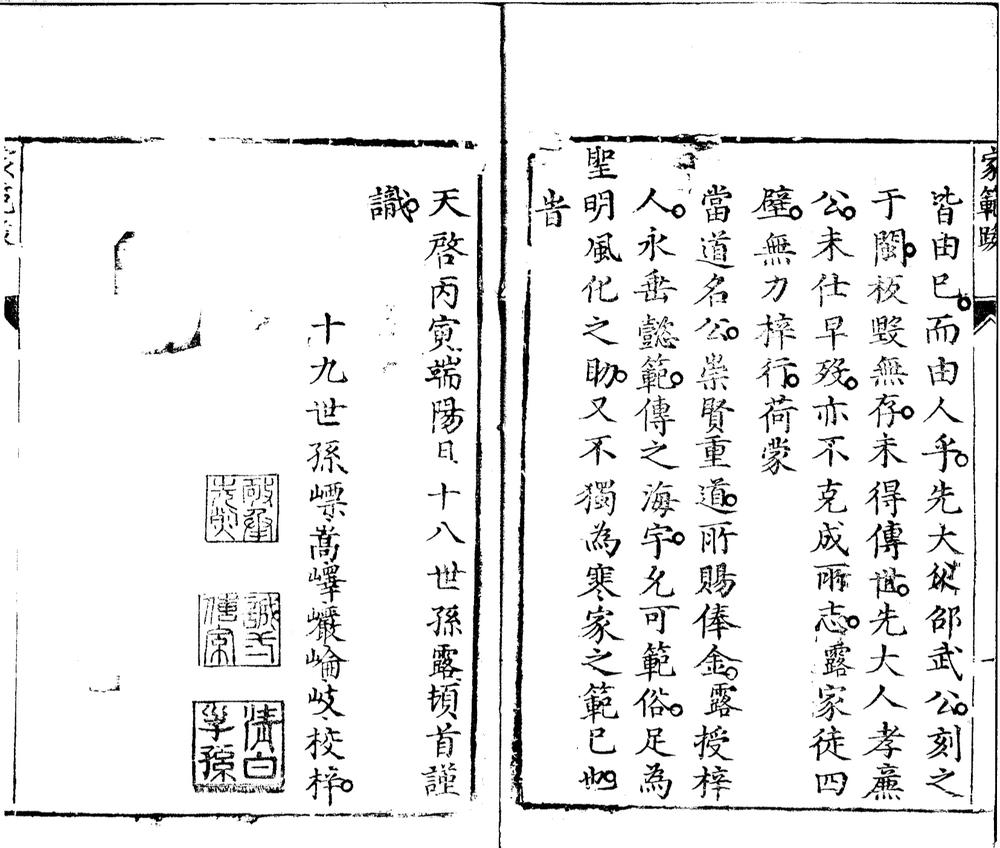 家範跋
皆由已而由人乎先大從邵武公刻之
于閩板毀無存未得傳世先大人孝廉
公未仕早歿亦不克成所志露家徒四
壁無力梓行荷蒙
當道名公崇賢重道所賜俸金露授梓
人永垂懿範傳之海宇允可範俗足為
聖明風化之助又不獨為寒家之範已也
旹
天啓丙寅端陽日十八世孫露頓首謹
識
十九世孫嶛嵩嶧巖崘岐校梓
清白
子孫